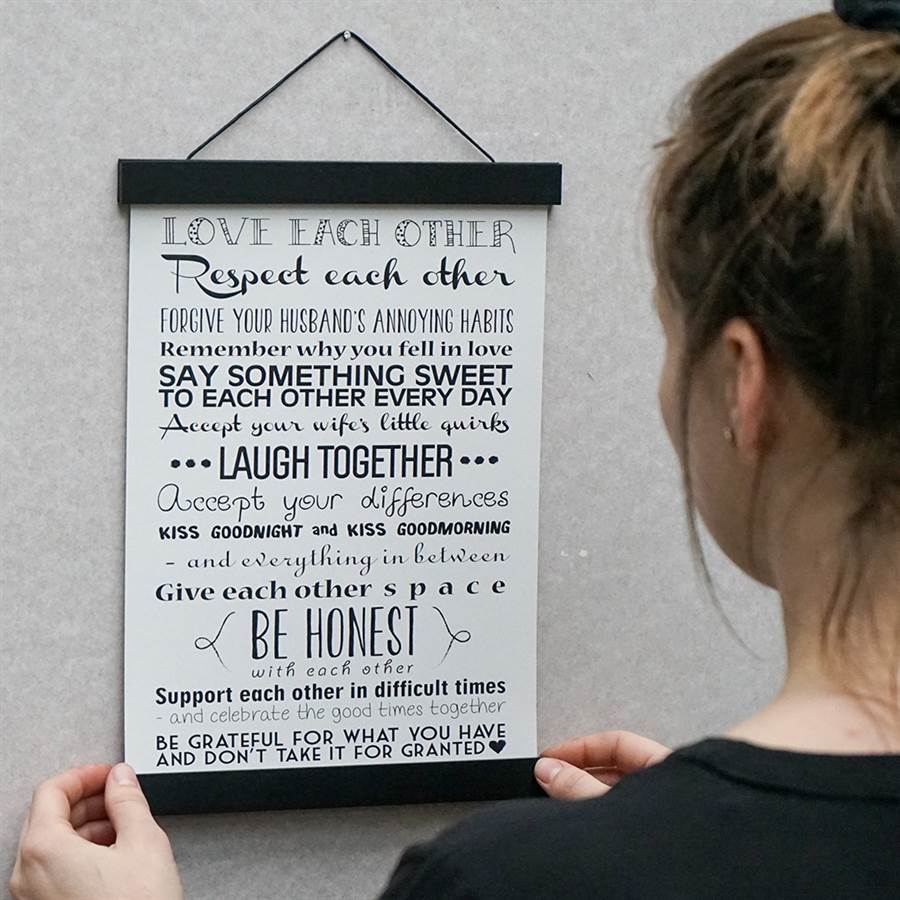 LOVE EACH OTHER
Respect each other
FORGIVE YOUR HUSBAND'S ANNOYING HABITS
Remember why you fell in love
SAY SOMETHING SWEET
TO EACH OTHER EVERY DAY
Accept your wife's little quirks
••• LAUGH TOGETHER •••
Accept your differences
KISS GOODNIGHT and KISS GOODMORNING
- and everything in between
Give each other s p a c e
BE HONEST
with each other
Support each other in difficult times
- and celebrate the good times together
BE GRATEFUL FOR WHAT YOU HAVE
AND DON'T TAKE IT FOR GRANTED♥